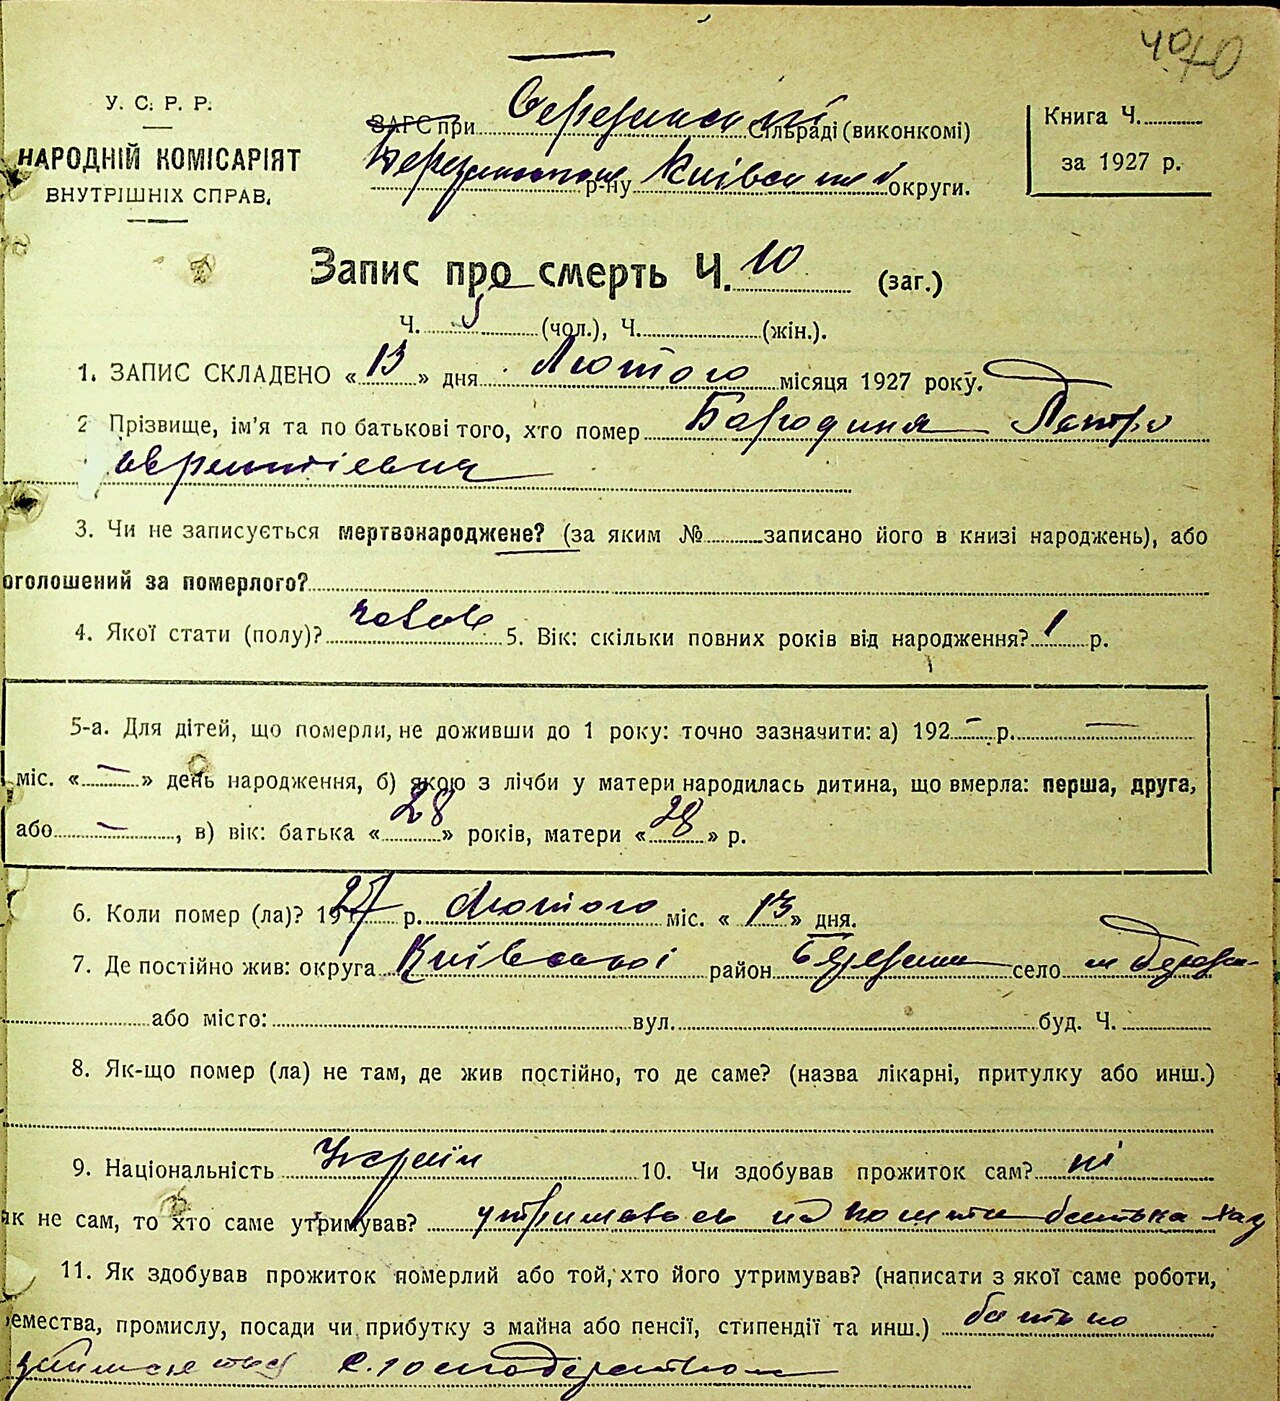 40
70
У. С. Р. Р.
НАРОДНІЙ КОМІСАРІЯТ
ВНУТРІШНІХ СПРАВ.
ЗАГС при Сільраді (виконкомі)
р-ну округи.
Книга Ч.
за 1927 р.
Запис про смерть Ч. 10 (заг.)
Ч. 5 (чол.), Ч. (жін.).
1. ЗАПИС СКЛАДЕНО « 13 » дня Лютого місяця 1927 року.
2 Прізвище, ім'я та по батькові того, хто помер Бородиня Петро
3. Чи не записується мертвонароджене? (за яким № записано його в книзі народжень), або
оголошений за померлого?
4. Якої стати (полу)? чолов 5. Вік: скільки повних років від народження? 1 р.
5-а. Для дітей, що померли, не доживши до 1 року: точно зазначити: а) 192 – р. —
міс. « — » день народження, б) якою з лічби у матери народилась дитина, що вмерла: перша, друга,
або — , в) вік: батька « 28 » років, матери « 28 » р.
6. Коли помер (ла)? 1927 р. Лютого міс. « 13 » дня.
7. Де постійно жив: округа Київської район село
або місто: вул. буд. Ч.
8. Як-що помер (ла) не там, де жив постійно, то де саме? (назва лікарні, притулку або инш.)
9. Національність Україн 10. Чи здобував прожиток сам? ні
як не сам, то хто саме утримував? утримовавсь на кошти батька
11. Як здобував прожиток померлий або той, хто його утримував? (написати з якої саме роботи,
ремества, промислу, посади чи прибутку з майна або пенсії, стипендії та инш.) батько
с. господарством